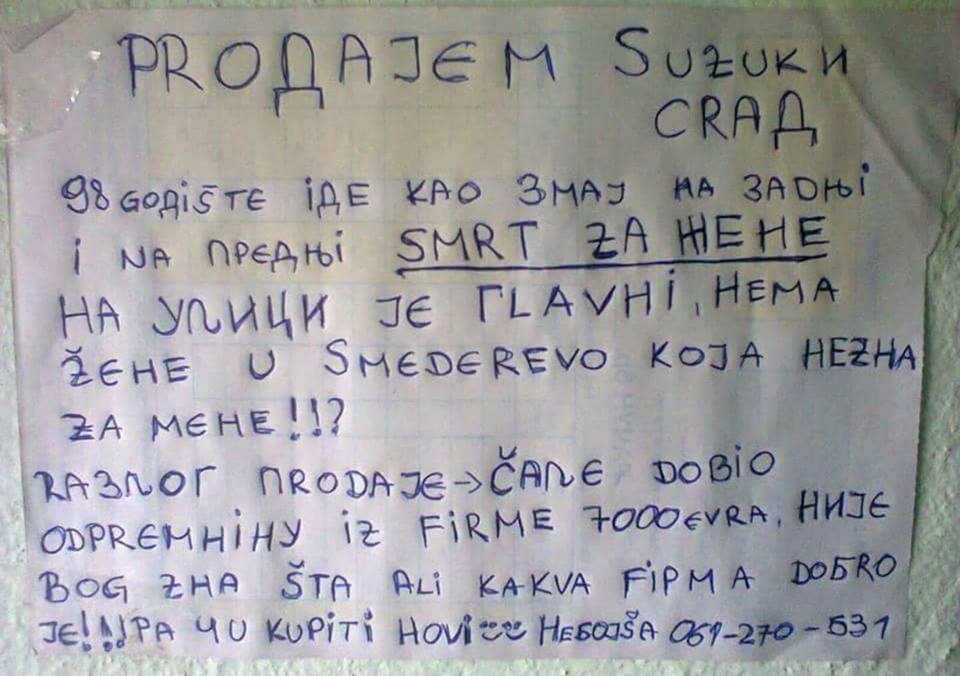 PRОДАЈЕМ SUZUKИ
CRAД
98 GOДiŠTE iДЕ КАО ЗМАЈ НА ЗАDЊi
i NA ПРЕДЊi SMRT ZA ЖЕНЕ
НА УЛИЦИ ЈЕ ГLAVНi, НЕМА
ŽЕНЕ U SMEDEREVO КОЈА НЕZНА
ZA МЕНЕ!!!?
RАЗЛОГ ПRODAJE→ČAЛЕ DOBiO
ODPREMНiНУ iZ FiRME 7000 EVRA, НИЈЕ
BOG ZНА ŠTA ALi KAKVA FiРМА DОБRO
ЈЕ!!!! PA ЧU KUPiTi НОVi НЕБОЈŠА 061-270-531